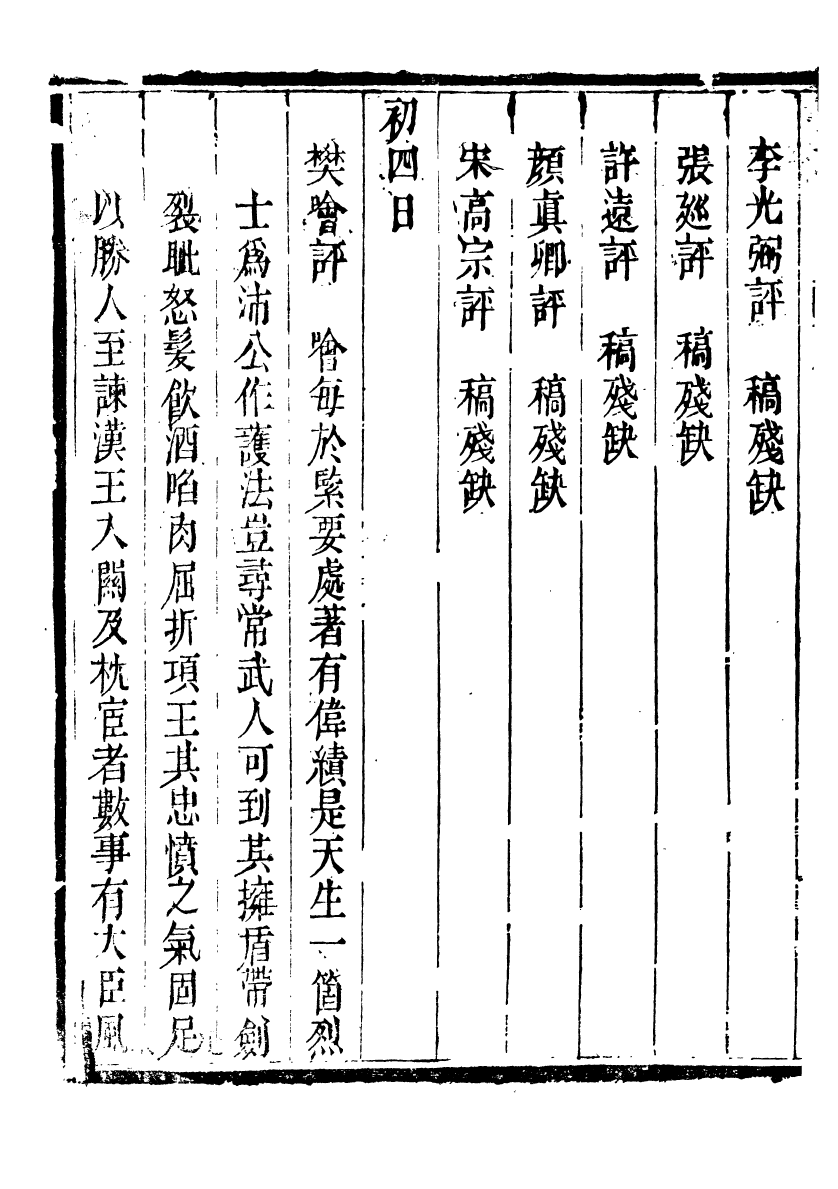 李光弼評　稿殘缺
張廵評　稿殘缺
許遠評　稿殘缺
顏眞卿評　稿殘缺
宋高宗評　稿殘缺
初四日
樊噲評　噲每於緊要處著有偉績是天生一箇烈
士爲沛公作護法豈尋常武人可到其擁盾帶劒
裂眦怒髮飮酒啗肉屈折項王其忠憤之氣固足
以勝人至諫漢王入關及枕宦者數事有大臣風